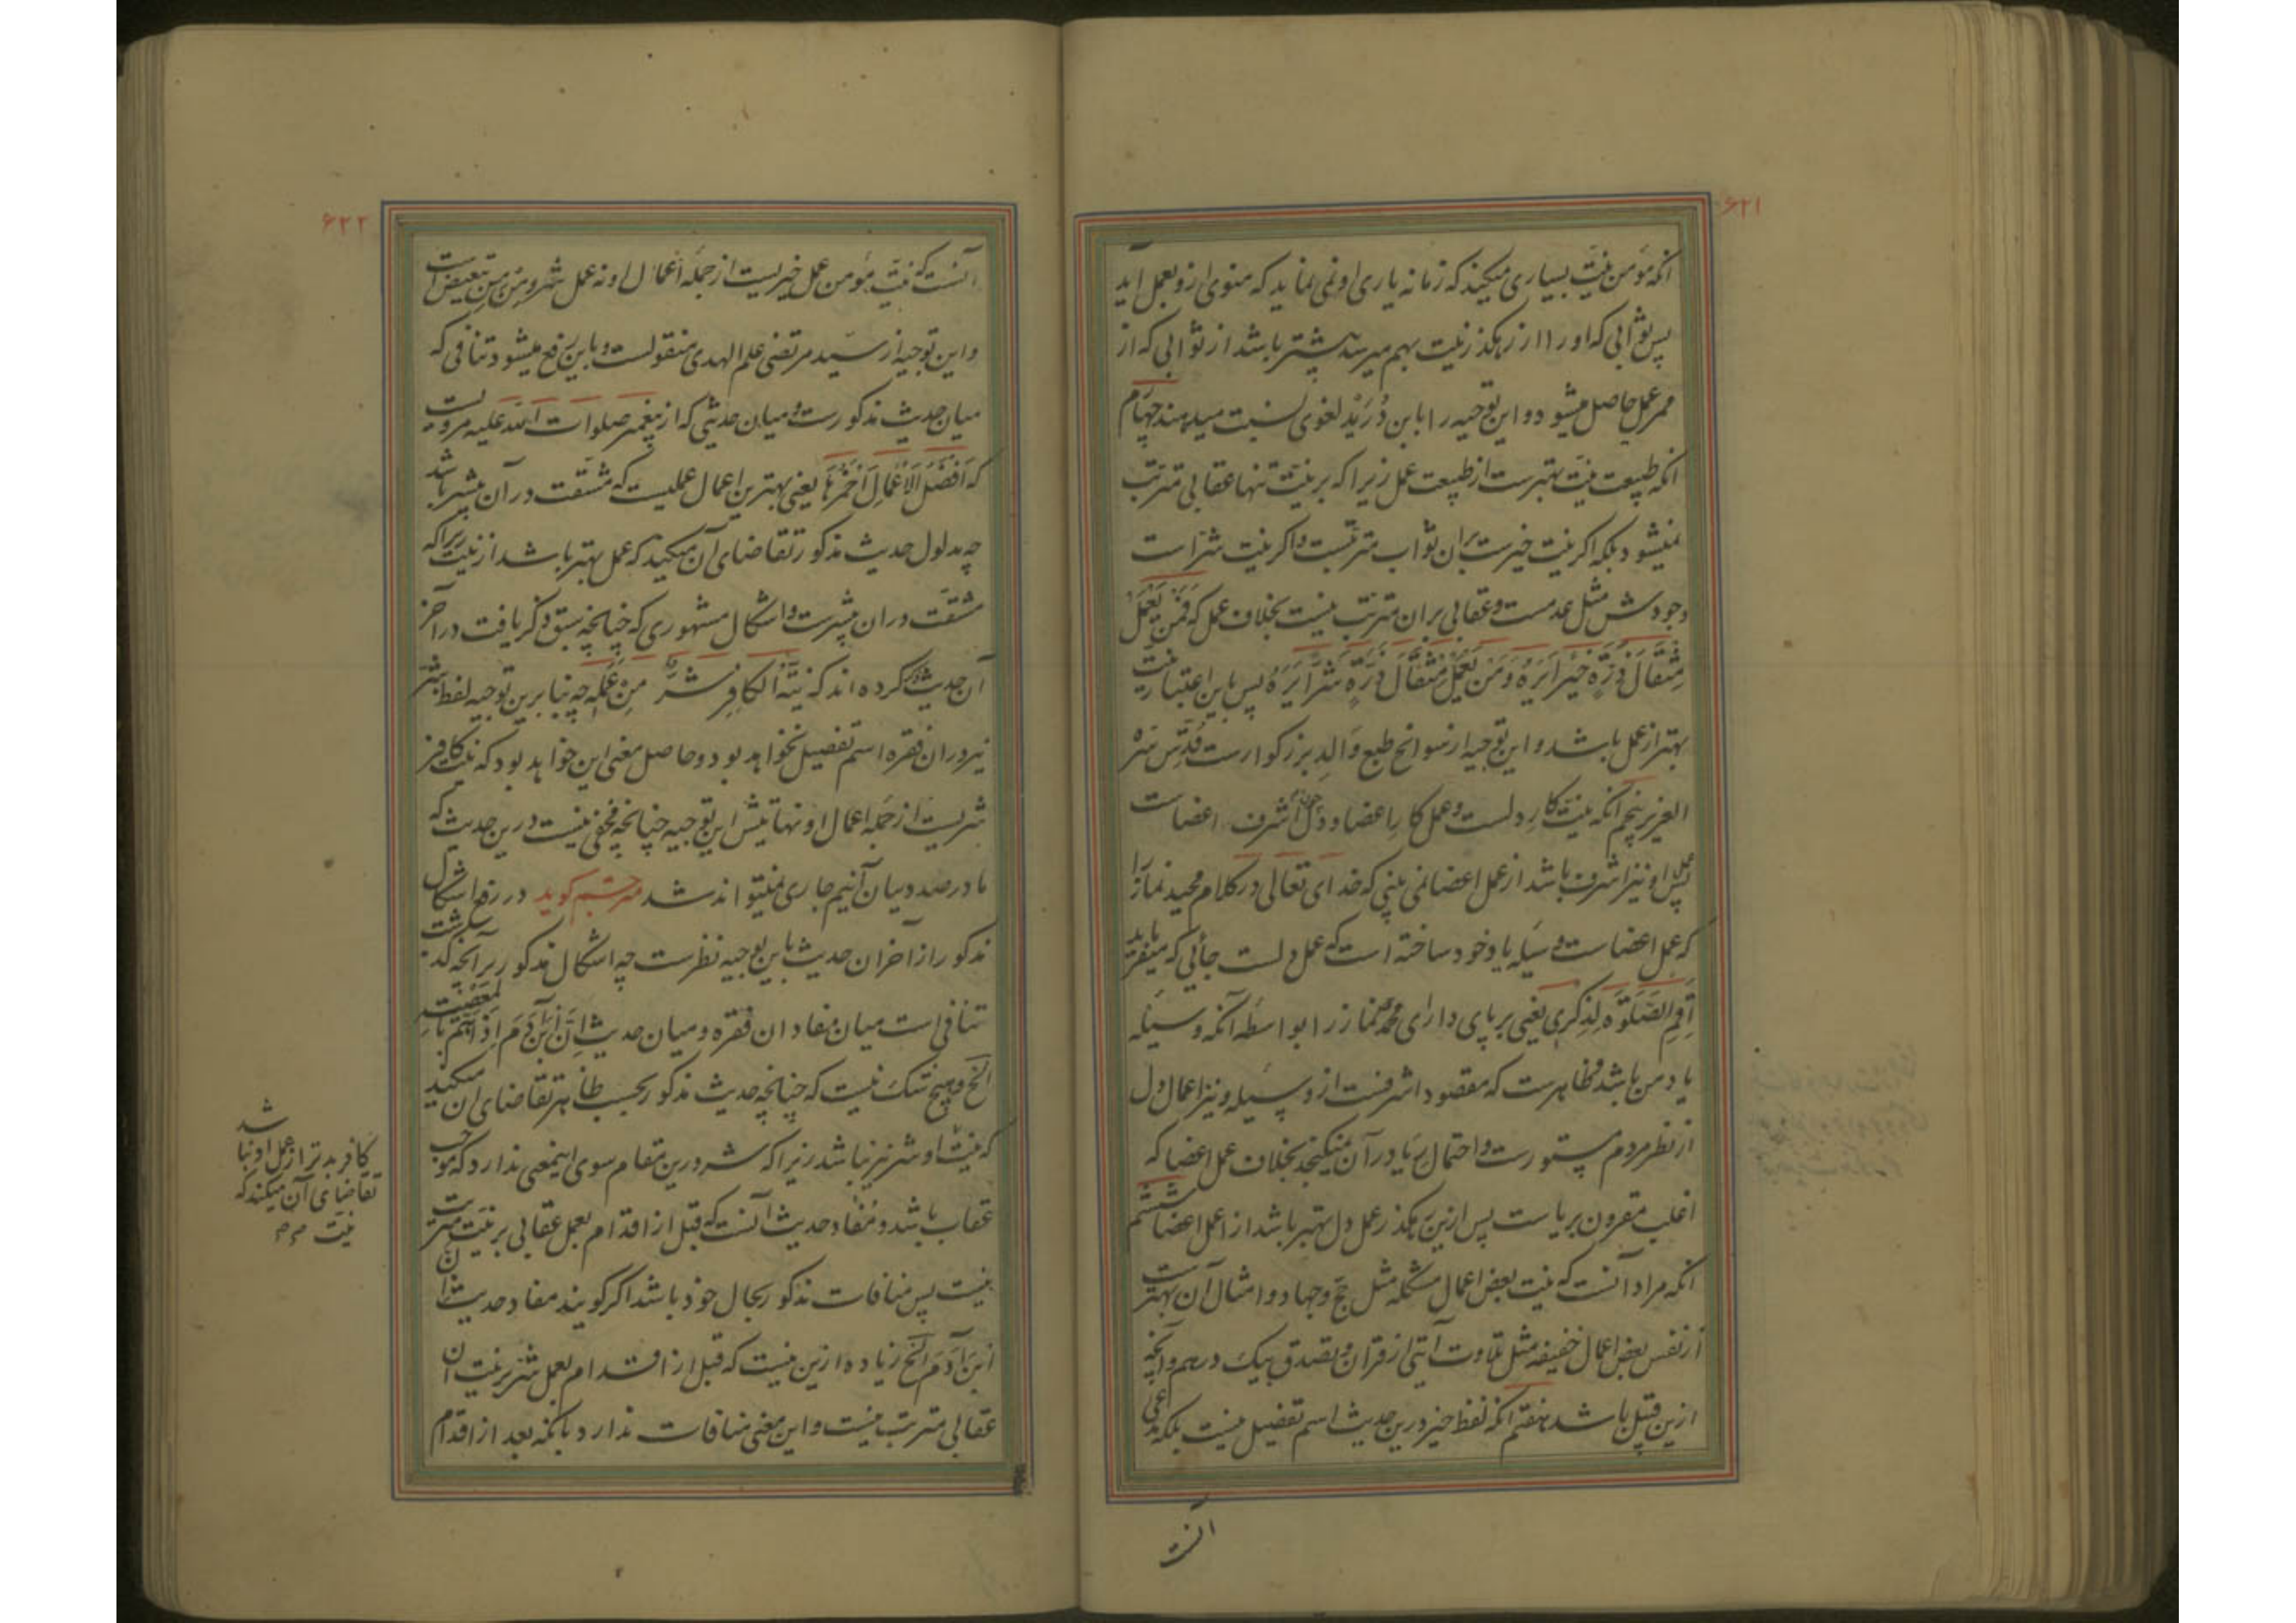 ۶۲۱
انکه مؤمن نیت بسیاری میکند که زمانه یاری او نمی نماید که منوی ازو بعمل آید
پس ثوابی که او را از رهکذر نیت بهم میرسد بیشتر باشد از ثوابی که از
ممر عمل حاصل میشود و این توجیه را بابن دُرَیْد لغوی نسبت میدهند چهارم
انکه طبیعت نیت بهترست از طبیعت عمل زیرا که بر نیت تنها عقابی مترتب
نمیشود بلکه اکر نیت خیرست بران ثواب مترتبست و اکر نیت شراست
وجودش مثل عدمست و عقابی بران مترتب نیست بخلاف عمل که فَمَنْ یَعْمَلْ
مِثْقَالَ ذَرَّةٍ خَیْرًا یَرَهُ وَمَنْ یَعْمَلْ مِثْقَالَ ذَرَّةٍ شَرًّا یَرَهُ پس باین اعتبار نیت
بهتر از عمل باشد و این توجیه از سوانح طبع والد بزرکوارست قُدِّسَ سرّه
العزیز پنجم آنکه نیت کار دلست و عمل کار اعضا و دل چون اشرف اعضاست
پس عمل او نیز اشرف باشد از عمل اعضا نمی بینی که خدای تعالی در کلام مجید نماز را
که عمل اعضاست وسیله یاد خود ساخته است که عمل دلست جائی که میفرماید
اَقِمِ الصَّلوٰةَ لِذِکْرِی یعنی برپای دار ای محمد نماز را بواسطه آنکه وسیله
یاد من باشد و ظاهرست که مقصود اشرفست از وسیله و نیز اعمال دل
از نظر مردم مستورست و احتمال ریا در آن نمیکنجد بخلاف عمل اعضا که
اغلب مقرون بریاست پس ازین رهکذر عمل دل بهتر باشد از عمل اعضا ششم
انکه مراد آنست که نیت بعض اعمال مشکله مثل حج و جهاد و امثال آن بهترست
از نفس بعض اعمال خفیفه مثل تلاوت آیتی از قرآن و تصدق بیک درهم و آنچه
ازین قبیل باشد هفتم انکه لفظ خیر درین حدیث اسم تفضیل نیست بلکه
آنست
۶۲۲
آنست که نیت مؤمن عمل خیریست از جمله اعمال او نه عمل شر و من من تبعیض است
و این توجیه از سید مرتضی علم الهدی منقولست و باین رفع میشود تنافی که
میان حدیث مذکورست و میان حدیثی که از پیغمبر صلوات الله علیه مرویست
که اَفْضَلُ الْاَعْمَالِ اَحْمَزُهَا یعنی بهترین اعمال عملیست که مشقت در آن بیشتر باشد
چه مدلول حدیث مذکور تقاضای آن میکند که عمل بهتر باشد از نیت زیراکه
مشقت دران بیشترست و اشکال مشهوری که چنانچه سبق ذکر یافت در آخر
آن حدیث کرده اند که نِیَّةُ الْکَافِرِ شَرٌّ مِنْ عَمَلِهِ چه بنابرین توجیه لفظ شر
نیز دران فقره اسم تفضیل نخواهد بود و حاصل معنی این خواهد بود که نیت کافر
شریست از جمله اعمال او نهایتش این توجیه چنانچه مخفی نیست درین حدیث که
ما درصدد بیان آنیم جاری نمیتواند شد مترجم کوید در رفع اشکال
مذکور از آخر ان حدیث باین توجیه نظرست چه اشکال مذکور بر آنچه کذشت
تنافی است میان مفاد ان فقره و میان حدیث اِنَّ ابْنَ آدَمَ اِذَا هَمَّ بِالْمَعْصِیَت
الخ و هیچ شک نیست که چنانچه حدیث مذکور بحسب ظاهر تقاضای ان میکند
که نیت او شر نیز نباشد زیرا که شر درین مقام سوی اینمعنی ندارد که موجب
عقاب باشد و مفاد حدیث آنست که قبل از اقدام بعمل عقابی بر نیت مترتب
نیست پس منافات مذکور بحال خود باشد اکر کویند مفاد حدیث ان
ابن آدم الخ زیاده ازین نیست که قبل از اقدام بعمل شر بر نیت ان
عقابی مترتب نیست و این معنی منافات ندارد بانکه بعد از اقدام
کافر بدتر از عمل او نباشد
تقاضای آن میکند که
نیت